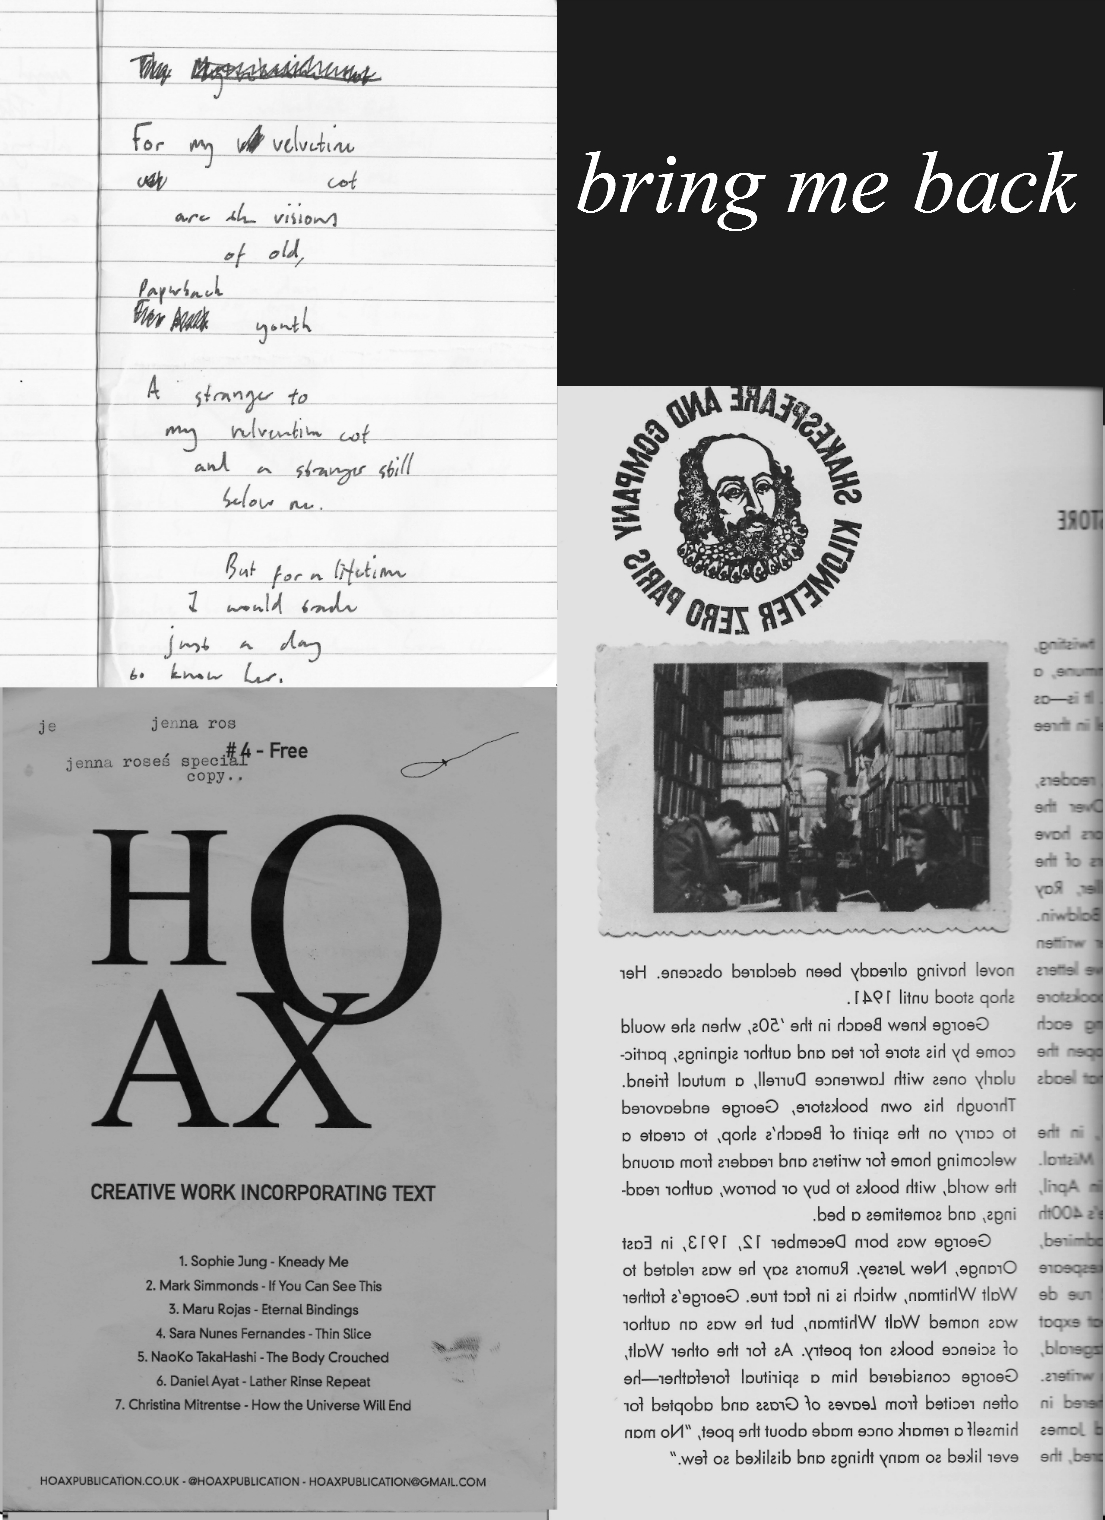 The
For my velvetine
cot
are the visions
of old,
Paperback
youth
A stranger to
my velventine cot
and a stranger still
below me.
But for a lifetime
I would trade
just a day
to know her.
bring me back
SHAKESPEARE AND COMPANY
KILOMETER ZERO PARIS
STORE
novel having already been declared obscene. Her
shop stood until 1941.
George knew Beach in the '50s, when she would
come by his store for tea and author signings, partic-
ularly ones with Lawrence Durrell, a mutual friend.
Through his own bookstore, George endeavored
to carry on the spirit of Beach's shop, to create a
welcoming home for writers and readers from around
the world, with books to buy or borrow, author read-
ings, and sometimes a bed.
George was born December 12, 1913, in East
Orange, New Jersey. Rumors say he was related to
Walt Whitman, which is in fact true. George's father
was named Walt Whitman, but he was an author
of science books not poetry. As for the other Walt,
George considered him a spiritual forefather—he
often recited from Leaves of Grass and adopted for
himself a remark once made about the poet, "No man
ever liked so many things and disliked so few."
twisting,
a
It is—as
in three
readers,
Over the
have
of the
Ray
Baldwin.
written
letters
bookstore
each
open the
leads
in the
Mistral.
in April,
400th
admired,
rue de
expat
writers.
in
James
the
je
jenna ros
#4 - Free
jenna roseś special
copy..
HOAX
CREATIVE WORK INCORPORATING TEXT
1. Sophie Jung - Kneady Me
2. Mark Simmonds - If You Can See This
3. Maru Rojas - Eternal Bindings
4. Sara Nunes Fernandes - Thin Slice
5. NaoKo TakaHashi - The Body Crouched
6. Daniel Ayat - Lather Rinse Repeat
7. Christina Mitrentse - How the Universe Will End
HOAXPUBLICATION.CO.UK - @HOAXPUBLICATION - HOAXPUBLICATION@GMAIL.COM